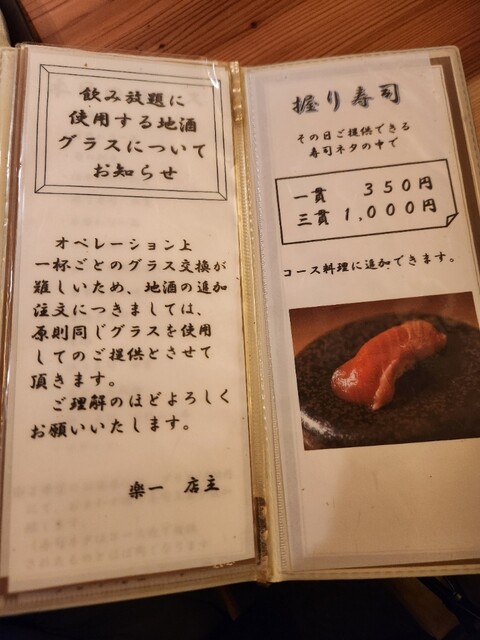 飲み放題に
使用する地酒
グラスについて
お知らせ
オペレーション上
一杯ごとのグラス交換が
難しいため、地酒の追加
注文につきましては、
原則同じグラスを使用
してのご提供とさせて
頂きます。
ご理解のほどよろしく
お願いいたします。
楽一 店主
握り寿司
その日ご提供できる
寿司ネタの中で
一貫 350円
三貫 1,000円
コース料理に追加できます。